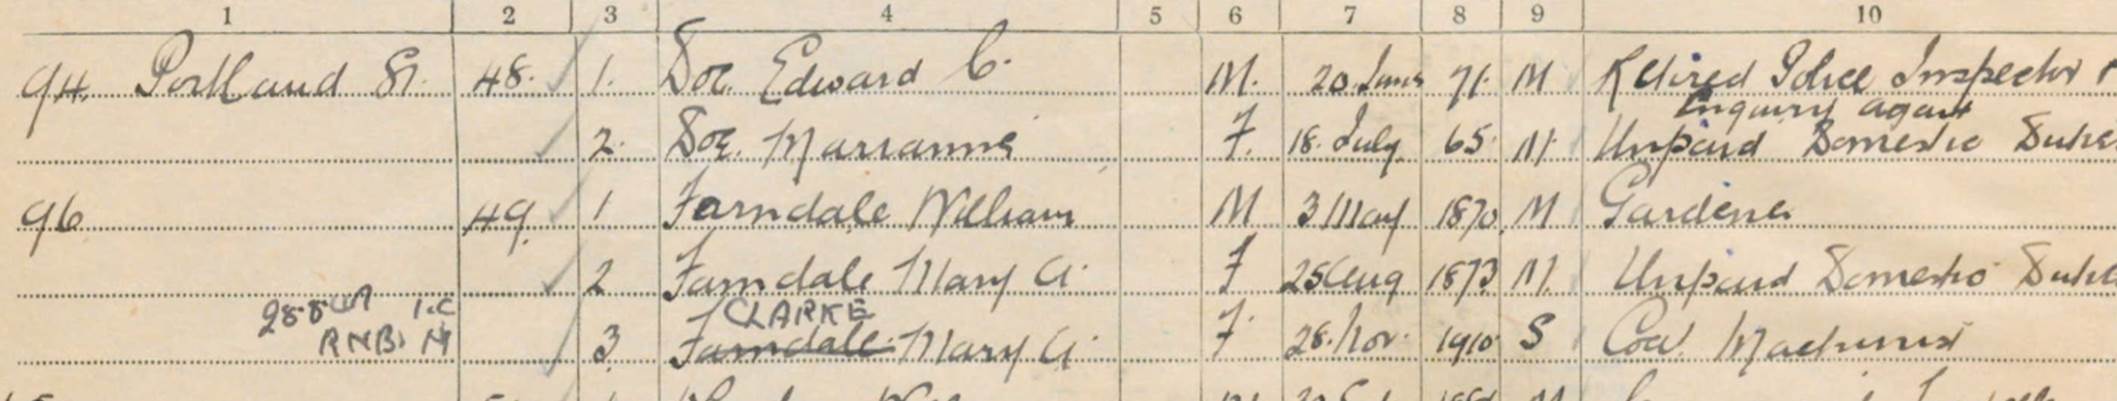 1 2 3 4 5 6 7 8 9 10
94. Portland St. 48. 1. Doe. Edward C. M. 20. June 71. M Retired Police Inspector
Enquiry agent
2. Doe. Marianne F. 18. July 65. M. Unpaid Domestic Duties
96 49. 1 Farndale William M 3 May 1870 M Gardener
2 Farndale Mary A. F 25 Aug 1873 M. Unpaid Domestic Duties
CLARKE
3. Farndale Mary A. F. 28. Nov. 1910 S Machinist